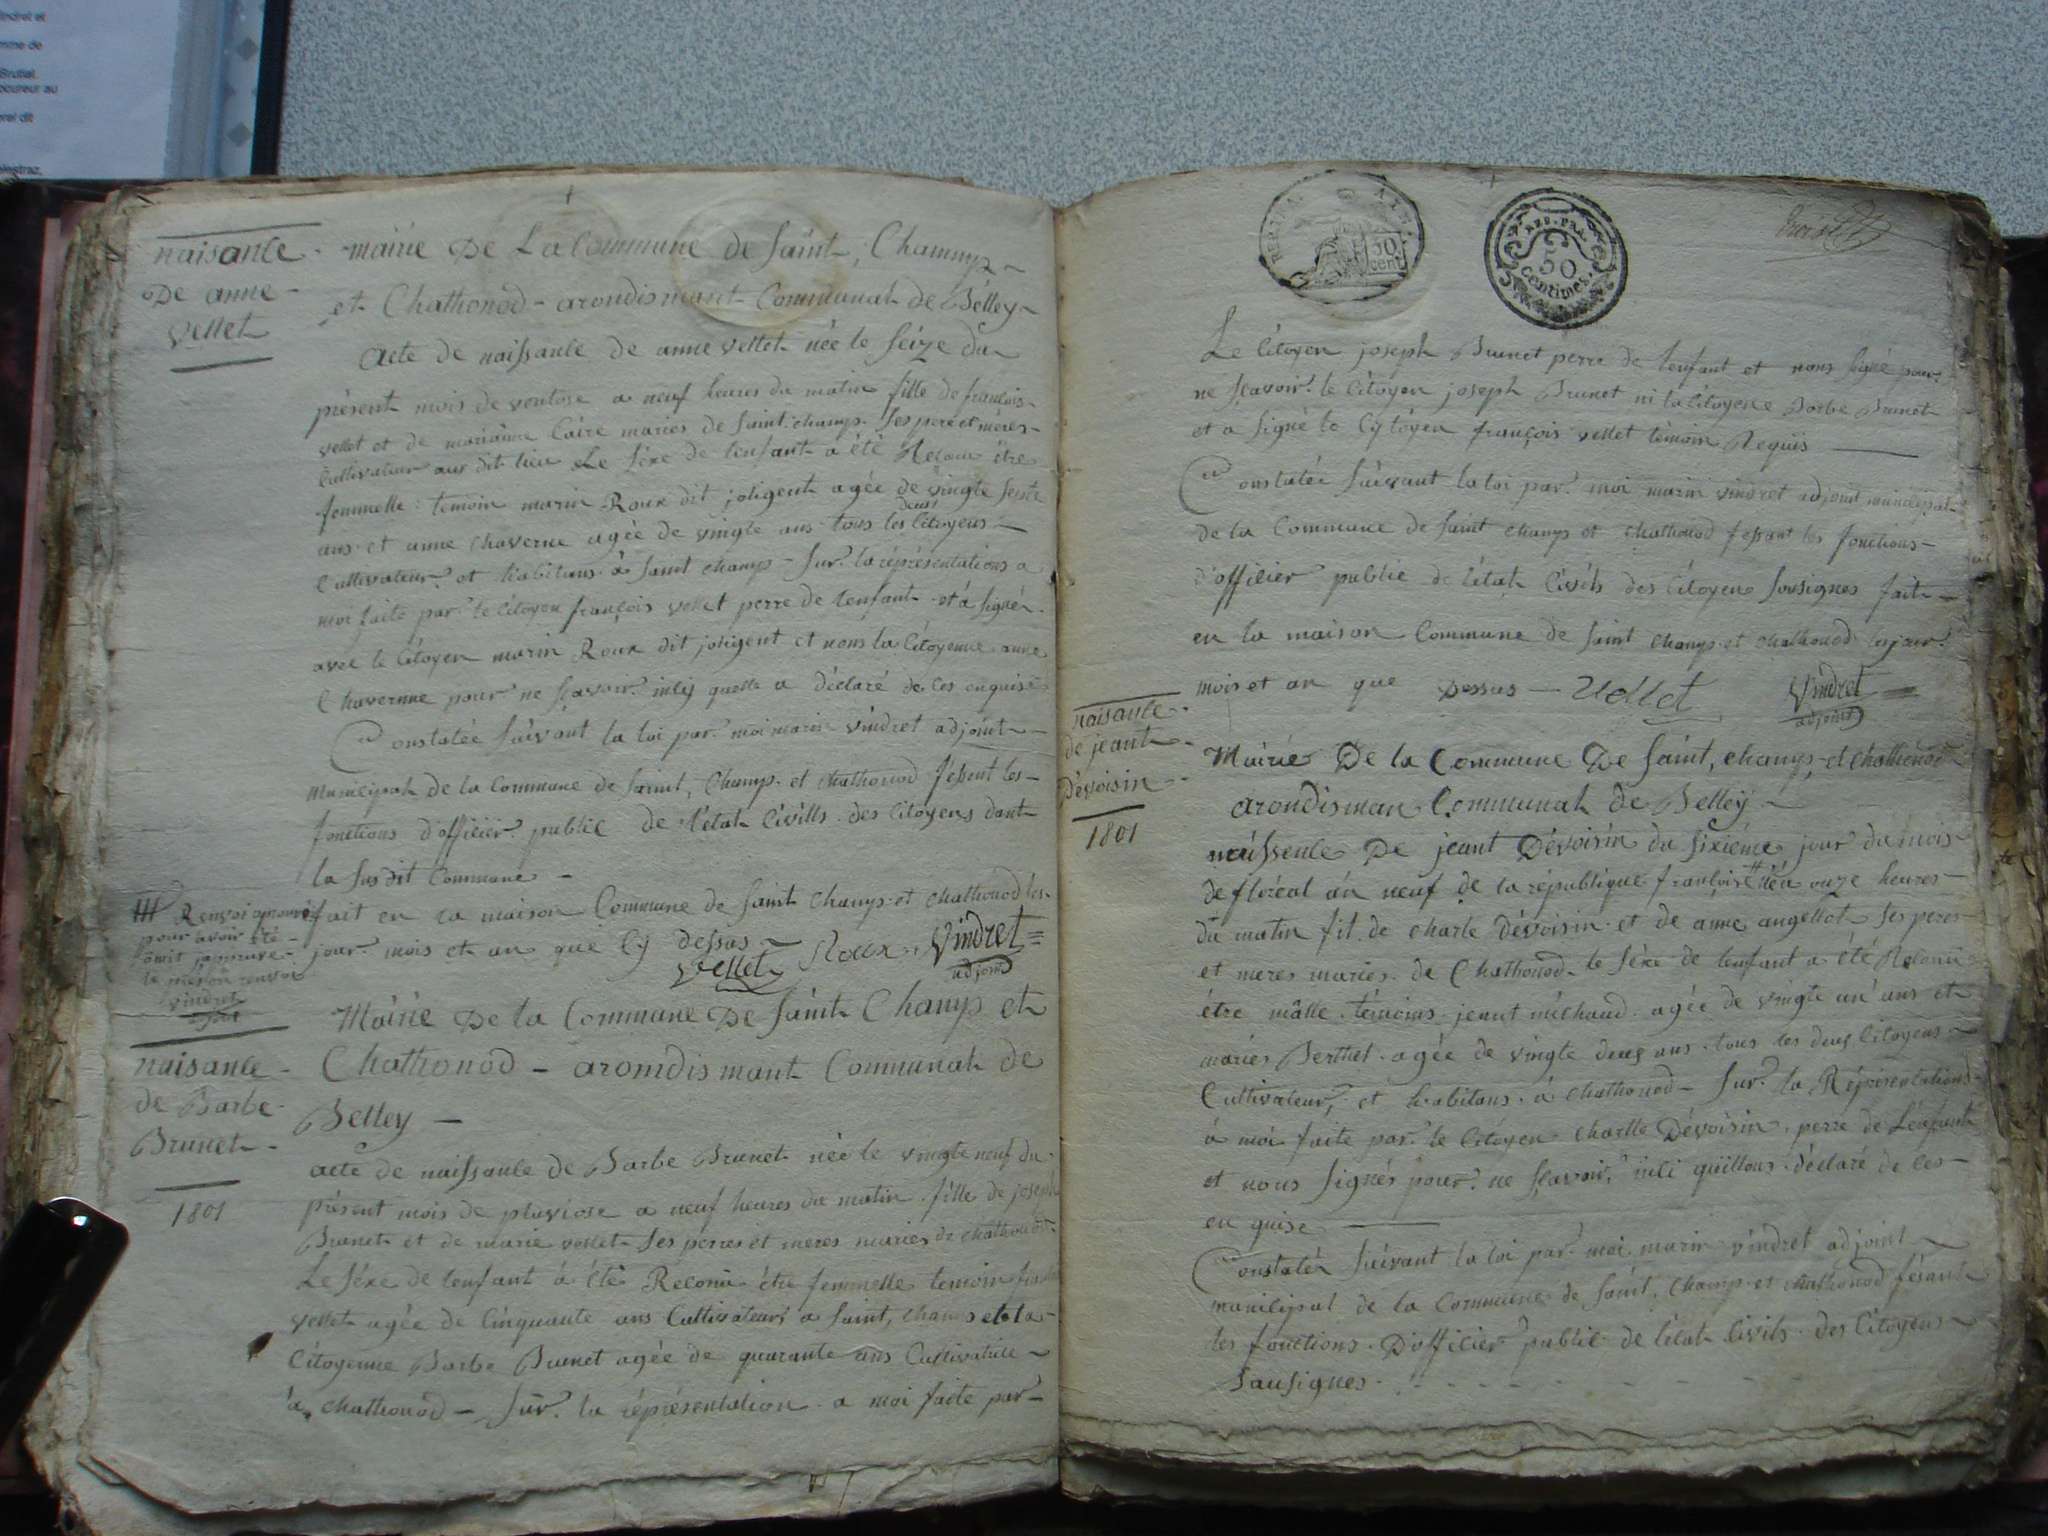 indret et
mme de
Brutial
ocureur au
rel dit
elestraz,
naisante
De anne
vellet
mairie De La Commune de Saint, Champ
et Chathonod - arondismant Communal de Belley
acte de naissance de anne vellet née le seize du
présent mois de ventose a neuf heures du matin fille de françois
vellet et de marianne Caire mariés de Saint champ. Ses pere et mères
Cultivateur au dit lieu Le séxe de lenfant a été Reconu être
femmelle : temoin marin Roux dit joligent agée de vingte sente
ans et anne chaverne agée de vingte ans tous les deux Citoyens
Cultivateur et habitans à Saint champ - Sur la réprésentations a
moi faite par le Citoyen françois vellet perre de lenfant et à signér
avec le Citoyen marin Roux dit joligent et nons la Citoyenne anne
Chavernne pour ne sçavoir inlij quelle a déclaré de ces enquise
Constatée suivant la loi par moi marin vindret adjoint
municipal de la Commune de Saint, Champ et chathonod fesent les
fonctions d'officiér public de l'état Civills des Citoyens dant
la susdit Commune -
fait en la maison Commune de Saint Champ et chathonod les
jour mois et an que Cy dessus
vellet Roux Vindret
adjoint
Renvoi aprouvé
pour avoir été
omit japrouve
le méson renvoi
vindret
adjoint
naisance
de Barbe
Brunet
1801
Mairie De la Commune De Saint Champ et
Chathonod - aromdismant Communal de
Belley -
acte de naissance de Barbe Brunet née le vingte neuf du
présent mois de pluviose a neuf heures du matin fille de joseph
Brunet et de marie vellet ses perres et meres mariés de chathonod
Le séxe de lenfant à été Reconu être femmelle temoin
vellet agée de Cinquante ans Cultivateur a Saint, champ et la
Citoyenne Barbe Brunet agée de quarante ans Cultivatrice
à chathonod - Sur la réprésentation a moi faite par
REP. FRA.
50
cent
REP. FRA.
50
centimes
Le Citoyen joseph Brunet perre de lenfant et nons signé pour
ne sçavoir le Citoyen joseph Brunet ni la Citoyene Barbe Brunet
et a signé le Cytoyen françois vellet témoin Requis
Constatée suivant la loi par moi marin vindret adjoint municipal
de la Commune de Saint champ et chathonod fessant les fonctions
d'officier public de l'état Civils des Citoyens sousignes fait
en la maison Commune de Saint champ et chathonod lesjour
mois et an que Dessus - Vellet Vindret
adjoint
naisance
de jeant
Dévoisin
1801
Mairie De la Commune De Saint, champ et Chathonod
arondisman Communal de Belley
naissence De jeant Dévoisin du sixiéme jour du mois
de floréal an neuf de la république françoise née a onze heures
du matin fil de charle Dévoisin et de anne angellot ses peres
et meres mariés de Chathonod le séxe de lenfant a été Reconu
être mâlle témoins jeant michaud agée de vingte un ans et
maries Berthet agée de vingte deux ans tous les deux Citoyens
Cultivateur, et habitans à chathonod - Sur la Réprésentations
à moi faite par le Citoyen charlle Dévoisin perre de Lénfant
et nous signés pour ne sçavoir inli quillons déclaré de ces
en quise
Constatér suivant la loi par moi marin vindret adjoint
municipal de la Commune de Saint, Champ et chathonod fésant
les fonctions D'officier public de létat Civils des Citoyens
Sousignes